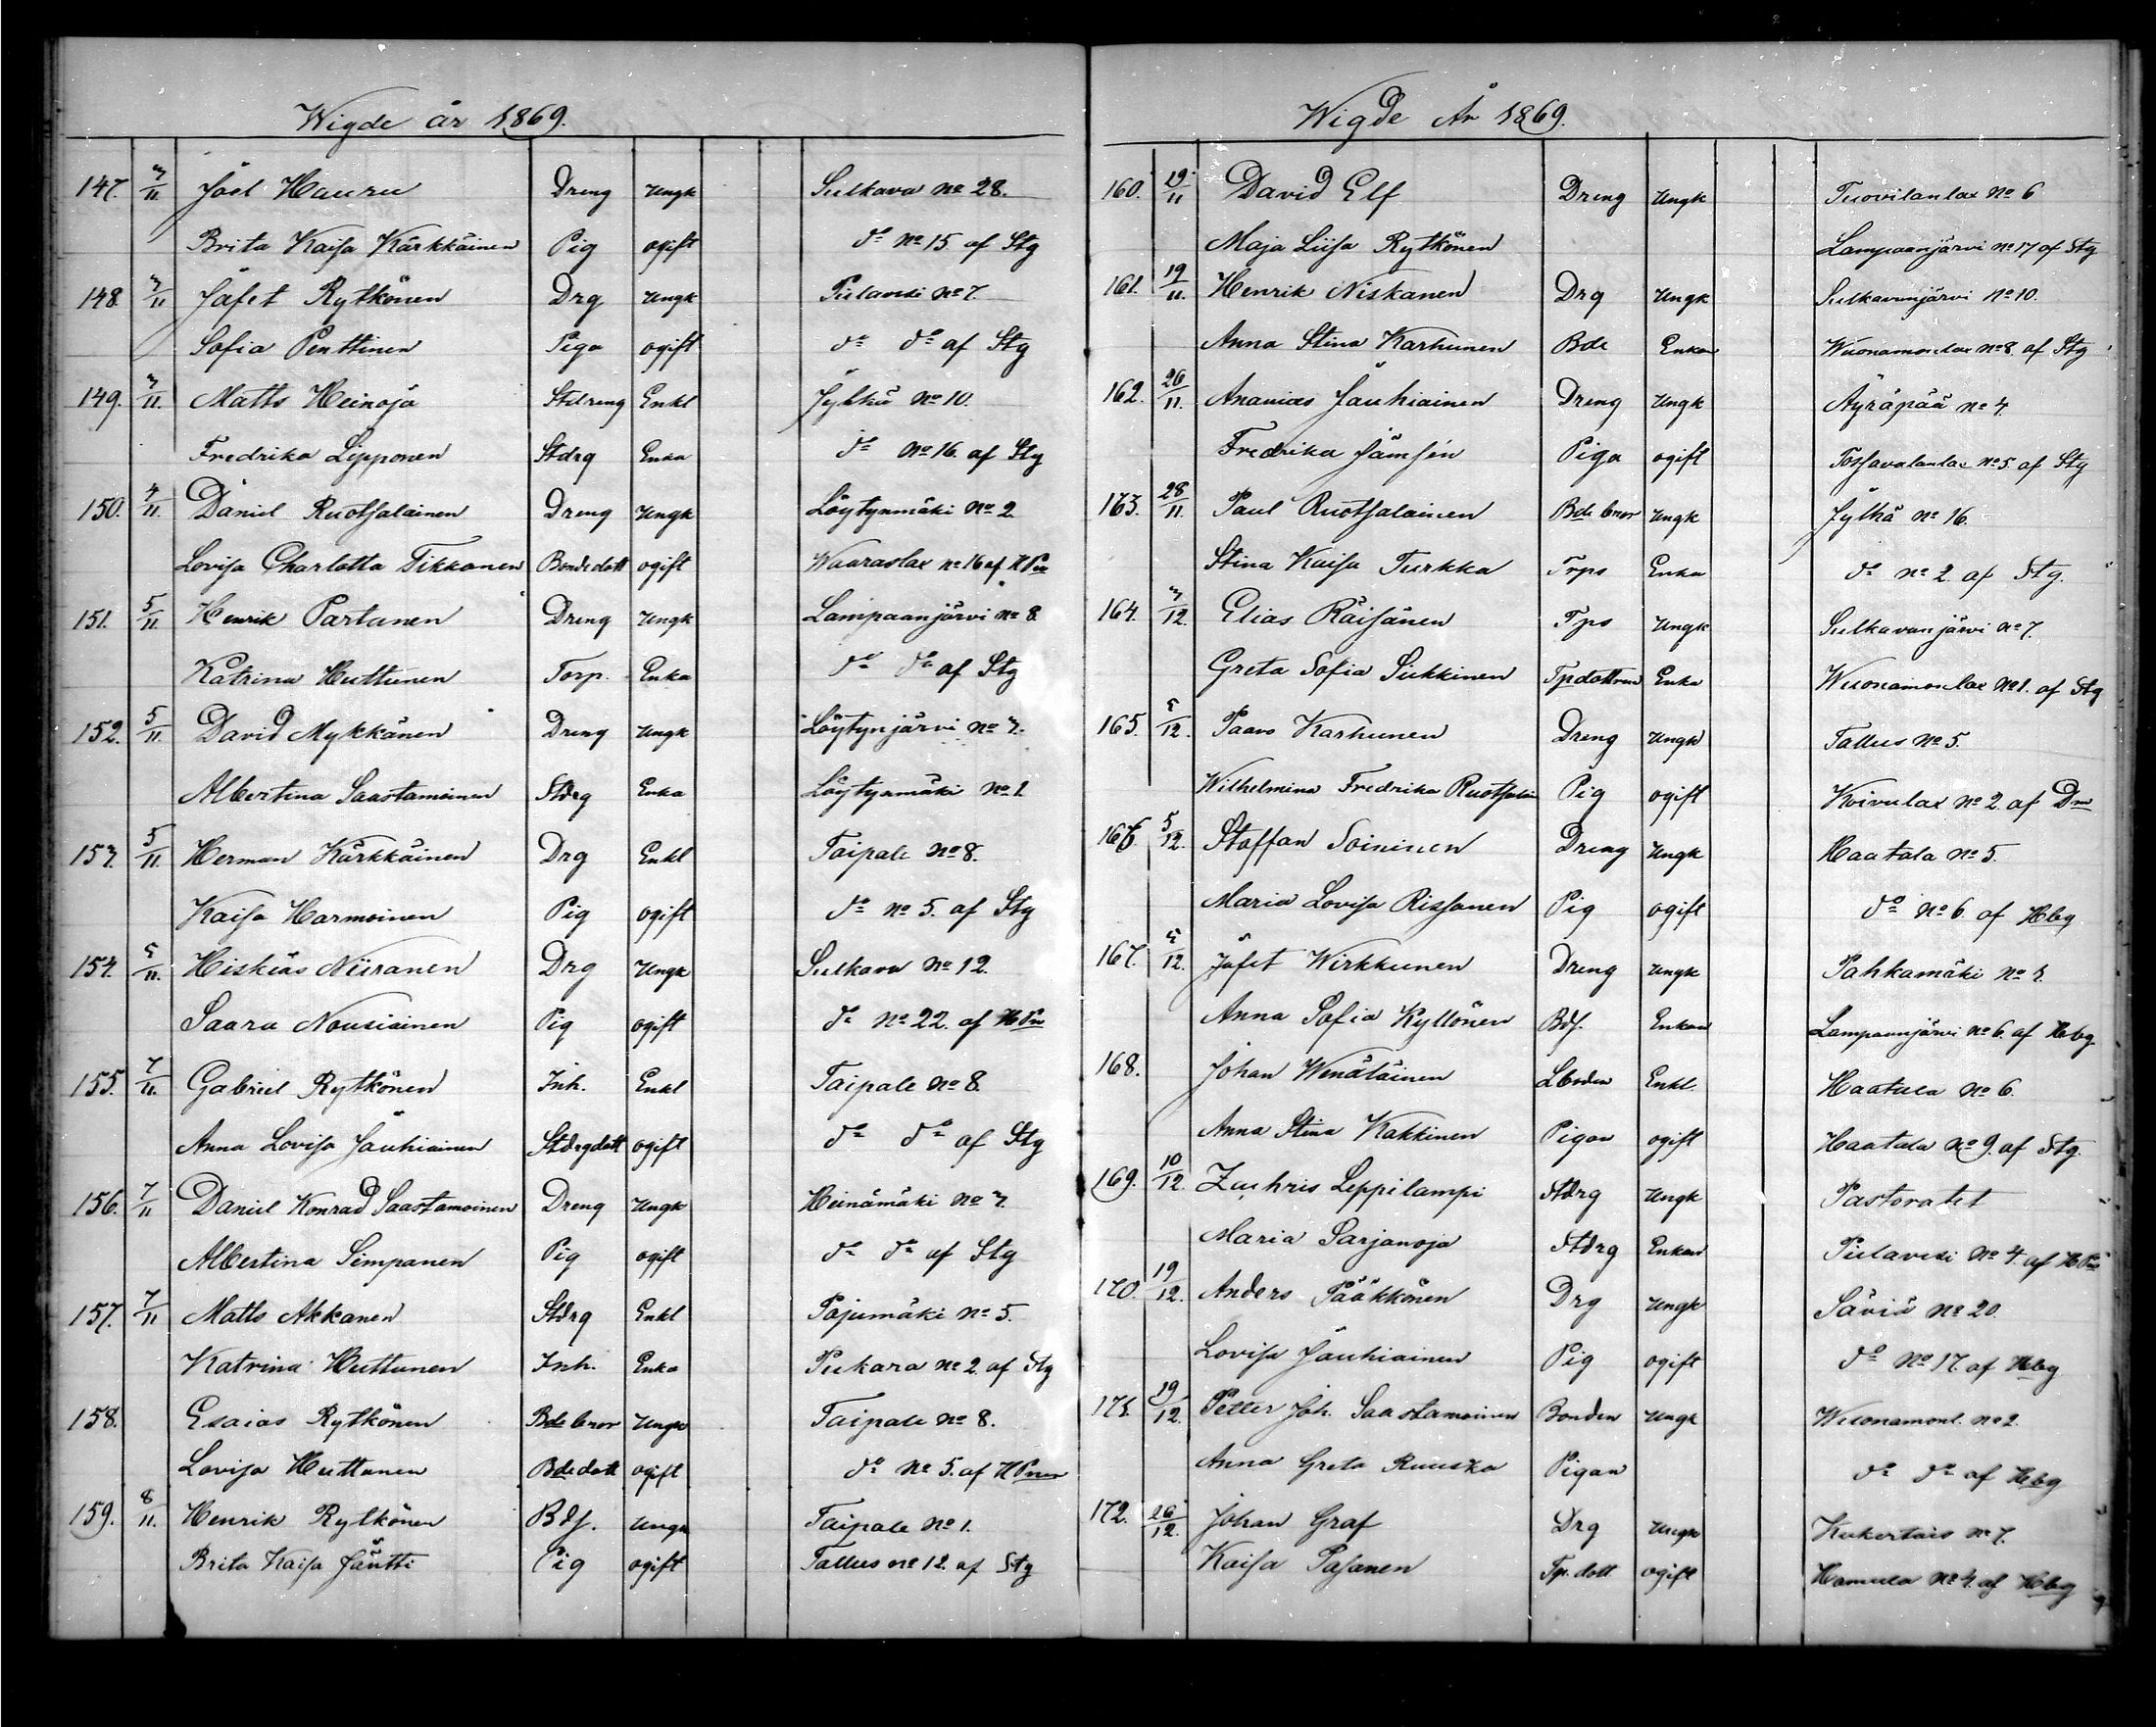 Wigde år 1869.
147. 3/11. Joel Hauru Dreng Ungk Sulkava No 28.
Brita Kaisa Kärkkäinen Pig ogift do No 15 af Stg
148 3/11 Jafet Rytkönen Drg Ungk Pielavesi No 7.
Sofia Penttinen Piga ogift do do af Stg
149. 3/11. Matts Heinoja Stdreng Enkl Jylhä No 10.
Fredrika Lipponen Stdrg Enka do No 16. af Stg
150. 4/11. Daniel Ruotsalainen Dreng Ungk Löytynmäki No 2
Lovisa Charlotta Tikkanen Bondedott ogift Waaraslax No 16 af
151. 5/11. Henrik Partanen Dreng Ungk Lampaanjärvi No 8
Katrina Huttunen Torp. Enka do do af Stg
152. 5/11. David Mykkänen Dreng Ungk Löytynjärvi No 3.
Albertina Saastamoinen Stdrg Enka Löytynmäki No 1
153. 5/11. Herman Kärkkäinen Drg Enkl Taipale No 8.
Kaisa Harmoinen Pig ogift do No 5. af Stg
154. 5/11. Hiskias Niiranen Drg Ungk Sulkava No 12.
Saara Nousiainen Pig ogift do No 22. af
155. 7/11. Gabriel Rytkönen Inh. Enkl Taipale No 8
Anna Lovisa Jauhiainen Stdrgdott ogift do do af Stg
156. 7/11 Daniel Konrad Saastamoinen Dreng Ungk Heinämäki No 3.
Albertina Simpanen Pig ogift do do af Stg
157. 7/11 Matts Akkanen Stdrg Enkl Pajumäki No 5.
Katrina Huttunen Inh. Enka Pukara No 2. af Stg
158. Esaias Rytkönen Bdebror Ungk Taipale No 8.
Lovisa Huttunen Bdedott ogift do No 5. af
159. 8/11. Henrik Rytkönen Bds. Ungk Taipale No 1.
Brita Kaisa Jäntti Pig ogift Tallus No 12. af Stg
Wigde År 1869.
160. 19/11 David Elf Dreng Ungk Tuovilanlax No 6
Maja Liisa Rytkönen Lampaanjärvi No 17 af Stg
161. 19/11. Henrik Niskanen Drg Ungk Sulkavanjärvi No 10.
Anna Stina Karhunen Bde Enkan Wuonamonlax No 8. af Stg
162. 26/11. Ananias Jauhiainen Dreng Ungk Äyräpää No 4.
Fredrika Jämsén Piga ogift af Stg
163. 28/11. Paul Ruotsalainen Bdebror Ungk Jylhä No 16.
Stina Kaisa Turkka Trps Enka do No 2. af Stg.
164. 3/12. Elias Räisänen Tps Ungk Sulkavanjärvi No 7.
Greta Sofia Sikkinen Tpdottren Enka Wuonamonlax No 1. af Stg
165. 5/12. Paavo Karhunen Dreng Ungk Tallus No 5.
Wilhelmina Fredrika Ruotsalain Pig ogift Koivulax No 2. af
166 5/12. Staffan Soininen Dreng Ungk Haatala No 5.
Maria Lovisa Rissanen Pig ogift do No 6. af Hbg
167. 5/12. Jafet Wirkkunen Dreng Ungk Pahkamäki No
Anna Sofia Kyllönen Bds. Enkan Lampaanjärvi No 6. af Hbg
168. Johan Wenäläinen Lbonden Enkl. Haatala No 6.
Anna Stina Kakkinen Pigan ogift Haatala No 9. af Stg.
169. 10/12. Zachris Leppilampi Stdrg Ungk Pastoratet
Maria Sarjanoja Stdrg Enkan Pielavesi No 4. af
170. 19/12. Anders Pääkkönen Drg Ungk Säviä No 20.
Lovisa Jauhiainen Pig ogift do No 17. af Hbg
171. 19/12. Petter Joh. Saastamoinen Bonden Ungk Wuonamonl. No 2.
Anna Greta Ruuska Pigan do do af Hbg
172. 26/12. Johan Graf Drg Ungk No 7.
Kaisa Pasanen Tp.dott ogift Hamula No 4. af Hbg